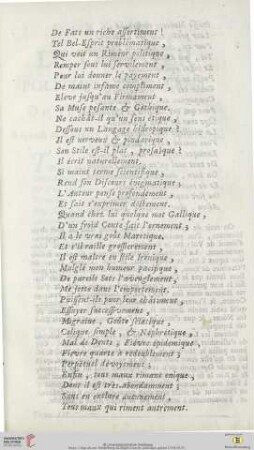 De Fats un riche assortiment !
Tel Bel-Esprit problématique,
Qui voit un Rimeur politique,
Ramper sous lui servilement,
Pour lui donner le payement,
De maint infame compliment,
Eleve jusqu'au Firmament,
Sa Muse pesante & Gothique.
Ne cachât-il qu'un sens étique,
Dessous un Langage hidropique ?
Il est nerveux & pindarique,
Son Stile est-il plat, prosaïque ?
Il écrit naturellement.
Si maint terme scientifique,
Rend son Discours énigmatique,
L'Auteur pense profondement,
Et sait s'exprimer doctement.
Quand chez lui quelque mot Gallique,
D'un froid Conte fait l'enement ;
Il a le vrai goût Marotique.
Et s'il raille grossierement,
Il est maître en stile Ironique,
Malgré mon humeur pacifique,
De pareils Sots l'aveuglement,
Me jette dans l'emportement.
Puissent-ils pour leur châtiment,
Essuyer successivement,
Migraine, Goute sciatique,
Colique simple, & Néphrétique,
Mal de Dents, Fiévre épidemique,
Fiévre quarte à redoublement ;
Perpetuel dévoyement ;
Enfin, tous maux riment enique,
Dont il est très-abondamment ;
Sans en exclure autrement,
Tous maux qui riment autrement.